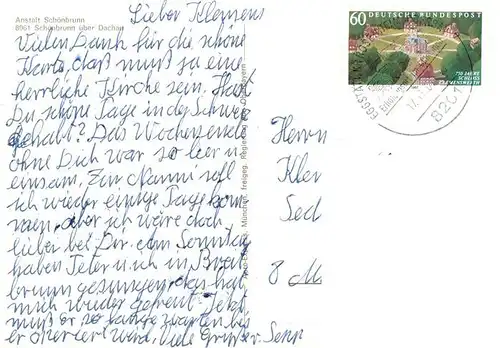 Anstalt Schönbrunn
8061 Schönbrunn über Dachau
Lieber Klemens
Vielen Dank für die schöne
Karte, daß muß ja eine
herrliche Kirche sein. Hast
Du schöne Tage in der Schweiz
gehabt? Das Wochenende
ohne Dich war so leer u
einsam. Zur Mammi soll
ich wieder einige Tage kom
men, aber ich wäre doch
lieber bei Dir. am Sonntag
haben Peter u. ich in
brunn gesungen, das hat
mich wieder gefreut. Jetzt
muß er so lange warten bis
er wird, Viele Grüße Sepp
60 DEUTSCHE BUNDESPOST
250 JAHRE
SCHLOSS
CLEMENSWERTH
8201
Herrn
Kle
Sed
8 Mü